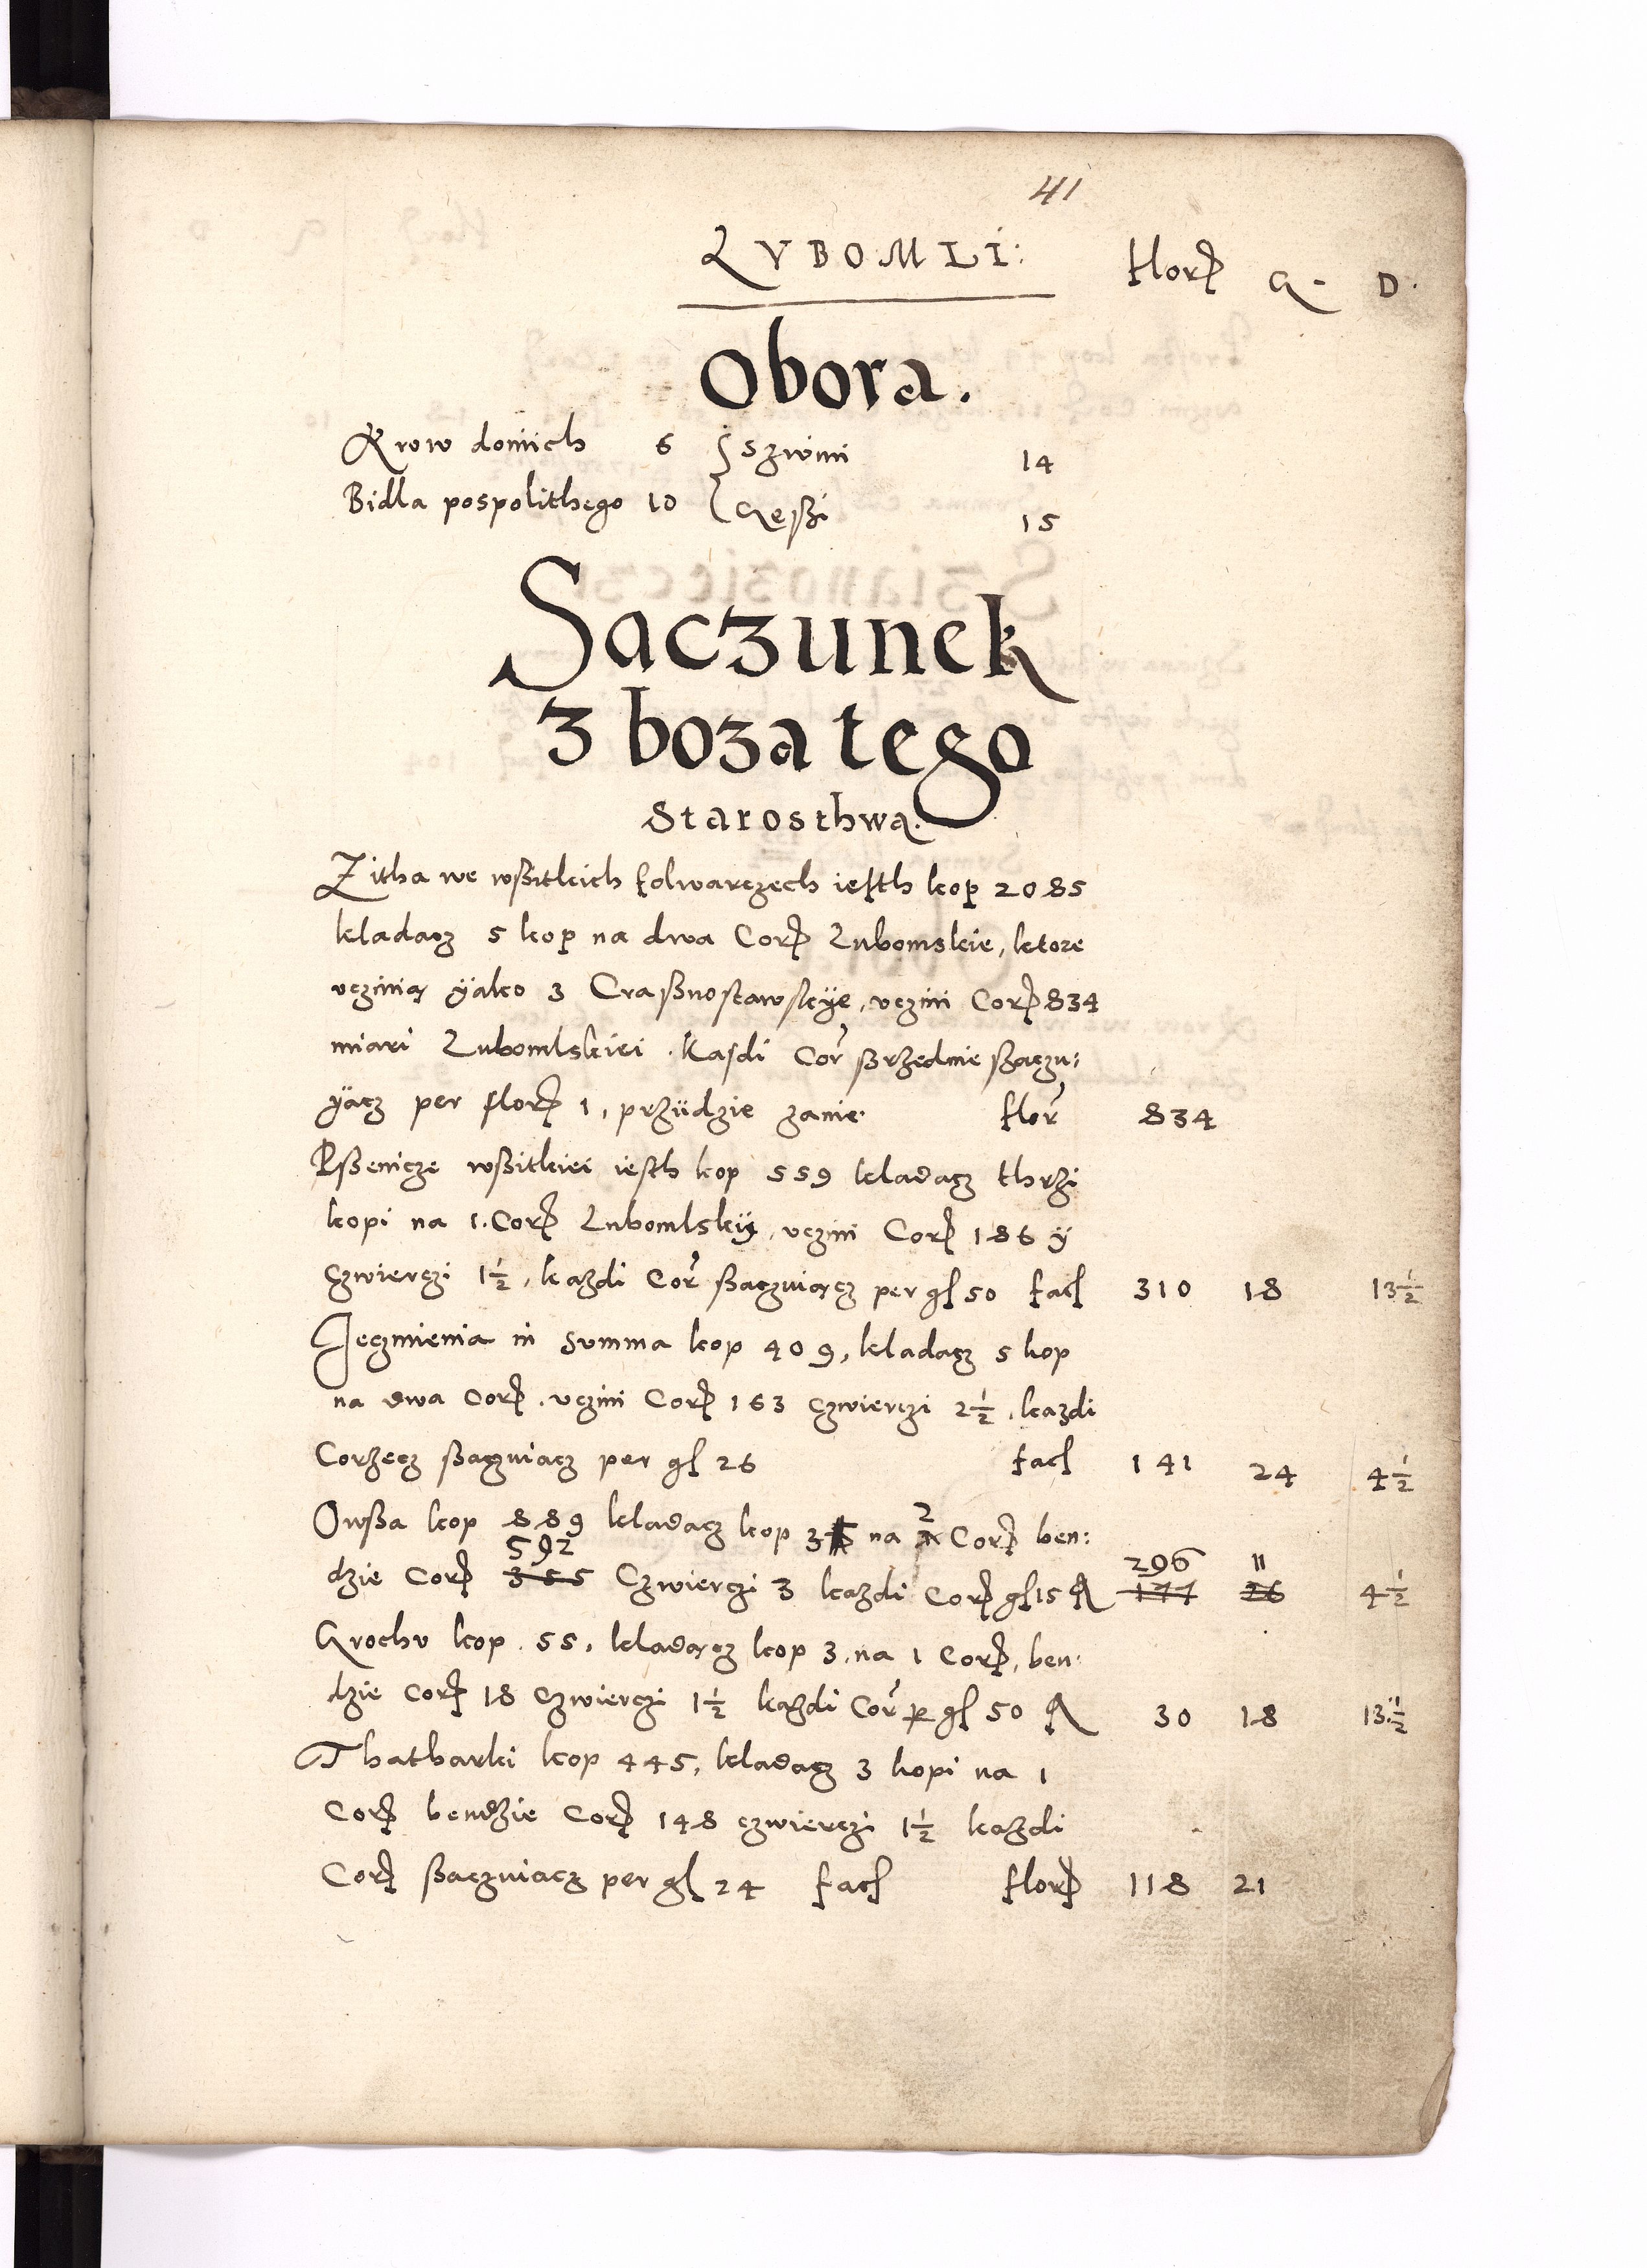 41
LVBOMLI:
florᷣ G. D.
Obora.
Krow doinich 6 Szwini 14
Bidla pospolithego 10 Gęßi 15
Saczunek
z boza tego
Starosthwa.
Zitha we wßitkich folwarczech iesth kop 2085
kladacz 5 kop na dwa Corꝝ Lubomskie, ktore
vczinią ÿako 3 Craßnostawskÿe, vczini Corꝝ 834
miari Lubomlskiei. Kasdi Cor ßrzednie ßaczu:
ÿącz per florꝝ 1, prziidzie zanie. flor 834
Pßenicze wßitkiei iesth kop 559 kladacz thrzi
kopi na 1. Corꝝ Lubomlskÿ, vczini Corꝝ 186 ÿ
czwierczi 1½, kazdi Cor ßaczuiącz per gſ 50 facſ 310 18 13½
Jeczmienia in summa kop 409, kladacz 5 kop
na dwa Corꝝ. vczini Corꝝ 163 czwierczi 2½, kazdi
Corzecz ßaczuiącz per gſ 26 facſ 141 24 4½
Owßa kop 889 kladacz kop 3 na 2 Corꝝ ben:
592 296 11
dzie Corꝝ 355 Czwierczi 3 kazdi Corꝝ gſ 15 fl 177 26 4½
Grochu kop. 55, kladącz kop 3, na 1 Corꝝ, ben:
dzie Corꝝ 18 czwierczi 1½ kazdi Cor ꝑ gſ 50 fl 30 18 13½
Thatharki kop 445, kladacz 3 kopi na 1
Corꝝ bendzie Corꝝ 148 czwierczi 1½ kazdi
Corꝝ ßaczuiącz per gſ 24 facſ florꝝ 118 21